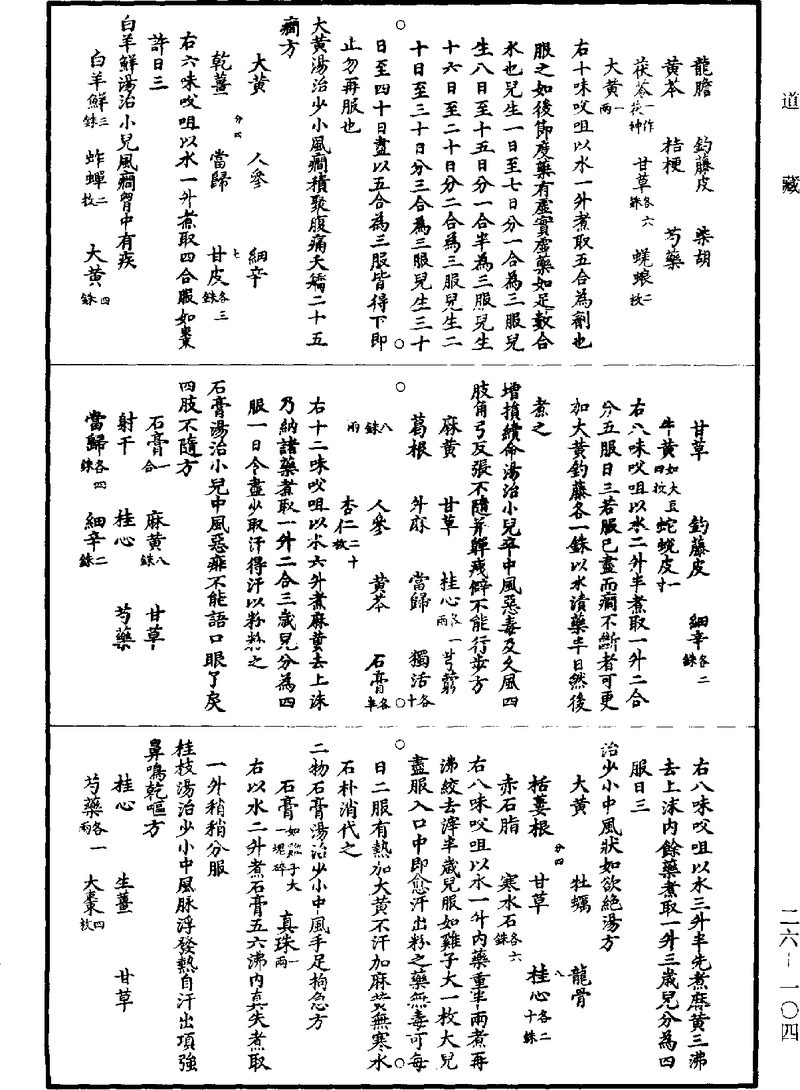 道藏
二六—一〇四
龍膽　釣藤皮　柴胡
黃芩　桔梗　芍藥
茯苓一作茯神　甘草各六銖　蜣螂二枚
大黃一兩
右十味㕮咀以水一升煮取五合為劑也
服之如後節度藥有虛實虛藥如足數合
水也兒生一日至七日分一合為三服兒
生八日至十五日分一合半為三服兒生
十六日至二十日分二合為三服兒生二
十日至三十日分三合為三服兒生三十
日至四十日盡以五合為三服皆得下即
止勿再服也
大黃湯治少小風癇積聚腹痛夭矯二十五
癇方
大黃　人參　細辛
乾薑　當歸　甘皮各三銖
右六味㕮咀以水一升煮取四合服如棗
許日三
白羊鮮湯治小兒風癇胷中有疾
白羊鮮三銖　蚱蟬二枚　大黃四銖
甘草　釣藤皮　細辛各二銖
牛黃如大豆四枚　蛇蛻皮一寸
右八味㕮咀以水二升半煮取一升二合
分五服日三若服已盡而癇不斷者可更
加大黃釣藤各一銖以水漬藥半日然後
煮之
增損續命湯治小兒卒中風惡毒及久風四
肢角弓反張不隨并嚲曳僻不能行步方
麻黃　甘草　桂心各一兩　芎藭
葛根　升麻　當歸　獨活各十
八銖　人參　黃芩　石膏各半
兩　杏仁二十枚
右十二味㕮咀以水六升煮麻黃去上沫
乃納諸藥煮取一升二合三歲兒分為四
服一日令盡少取汗得汗以粉粉之
石膏湯治小兒中風惡痱不能語口眼了戾
四肢不隨方
石膏一合　麻黃八銖　甘草
射干　桂心　芍藥
當歸各四銖　細辛二銖
右八味㕮咀以水三升半先煮麻黃三沸
去上沫內餘藥煮取一升三歲兒分為四
服日三
治少小中風狀如欲絕湯方
大黃　牡蠣　龍骨
栝蔞根　甘草　桂心各二十八銖
赤石脂　寒水石各六銖
右八味㕮咀以水一升內藥重半兩煮再
沸絞去滓半歲兒服如雞子大一枚大兒
盡服入口中即愈汗出粉之藥無毒可每
日二服有熱加大黃不汗加麻黃無寒水
石朴消代之
二物石膏湯治少小中風手足拘急方
石膏如雞子大一塊碎　真珠一兩
右以水二升煮石膏五六沸內真朱煮取
一升稍稍分服
桂枝湯治少小中風脉浮發熱自汗出項強
鼻鳴乾嘔方
桂心　生薑　甘草
芍藥各一兩　大棗四枚